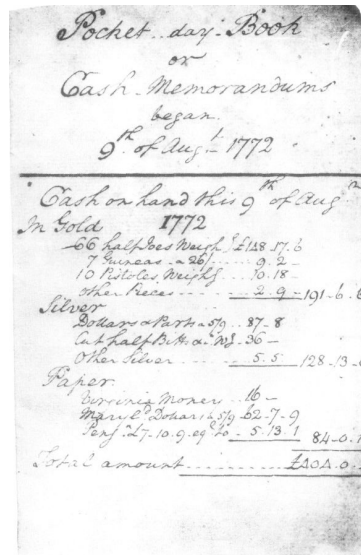 Pocket day Book
or
Cash Memorandums
began
9th of Augt 1772
Cash on hand this 9th of Augt
In Gold 1772
66 half Joes Weigh £148.17.6
7 Guineas a 26/ 9.2
10 Pistoles Weighg 10.18 -
Other Pieces 2.9 - 191.6.6
Silver
Dollars & Parts a 5/9 87-8
Cut half Bitts a 36 -
Other Silver 5.5 128.13
Paper
Virginia Money 16 -
Maryld Dollars a 5/9 62-7-9
Pens £7.10.9 eql to 5.13.1 84-0.
Total amount £404.0